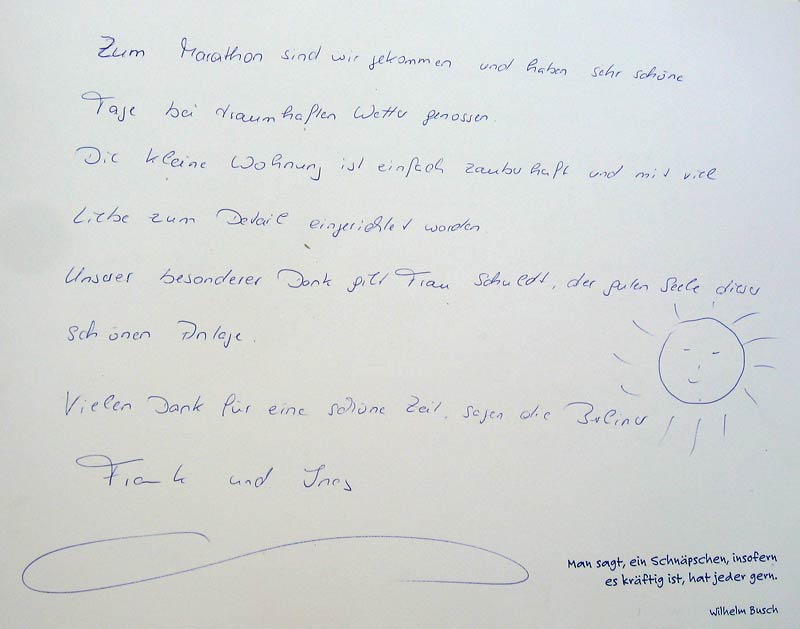 Zum Marathon sind wir gekommen und haben sehr schöne
Tage bei traumhaften Wetter genossen.
Die kleine Wohnung ist einfach zauberhaft und mit viel
Liebe zum Detail eingerichtet worden.
Unserer besonderer Dank gilt Frau Schuldt, der guten Seele dieser
schönen Anlage.
Vielen Dank für eine schöne Zeit, sagen die Berliner
Frank und Ines
Man sagt, ein Schnäpschen, insofern
es kräftig ist, hat jeder gern.
Wilhelm Busch